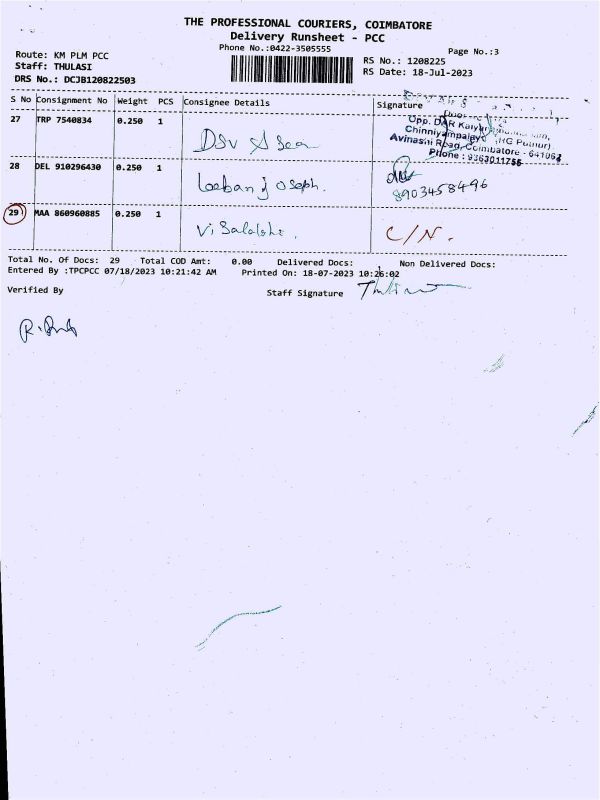 THE PROFESSIONAL COURIERS, COIMBATORE
Delivery Runsheet - PCC
Phone No.:0422-3505555
Page No.:3
Route: KM PLM PCC
RS No.: 1208225
Staff: THULASI
RS Date: 18-Jul-2023
DRS No.: DCJB120822503
S No Consignment No Weight PCS Consignee Details Signature
27 TRP 7540834 0.250 1
Opp. DAR
Avinashi Road, Coimbatore - 641062
Phone : 9363011755
28 DEL 910296430 0.250 1 Loeban Joseph.
8903458496
29 MAA 860960885 0.250 1 Visalakshi. C/N.
Total No. Of Docs: 29 Total COD Amt: 0.00 Delivered Docs: Non Delivered Docs:
Entered By :TPCPCC 07/18/2023 10:21:42 AM Printed On: 18-07-2023 10:26:02
Verified By Staff Signature